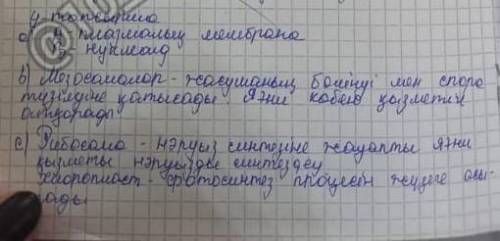 а) A - плазмалық мембрана
B - нуклеоид
b) Мезосомалар - жасушаның бөлінуі мен спора
түзілуіне қатысады яғни көбею қызметін
атқарады
c) Рибосома - нәруыз синтезіне жауапты яғни
қызметі нәруызды синтездеу
Хлоропласт - фотосинтез процесін жүзеге асы-
рады